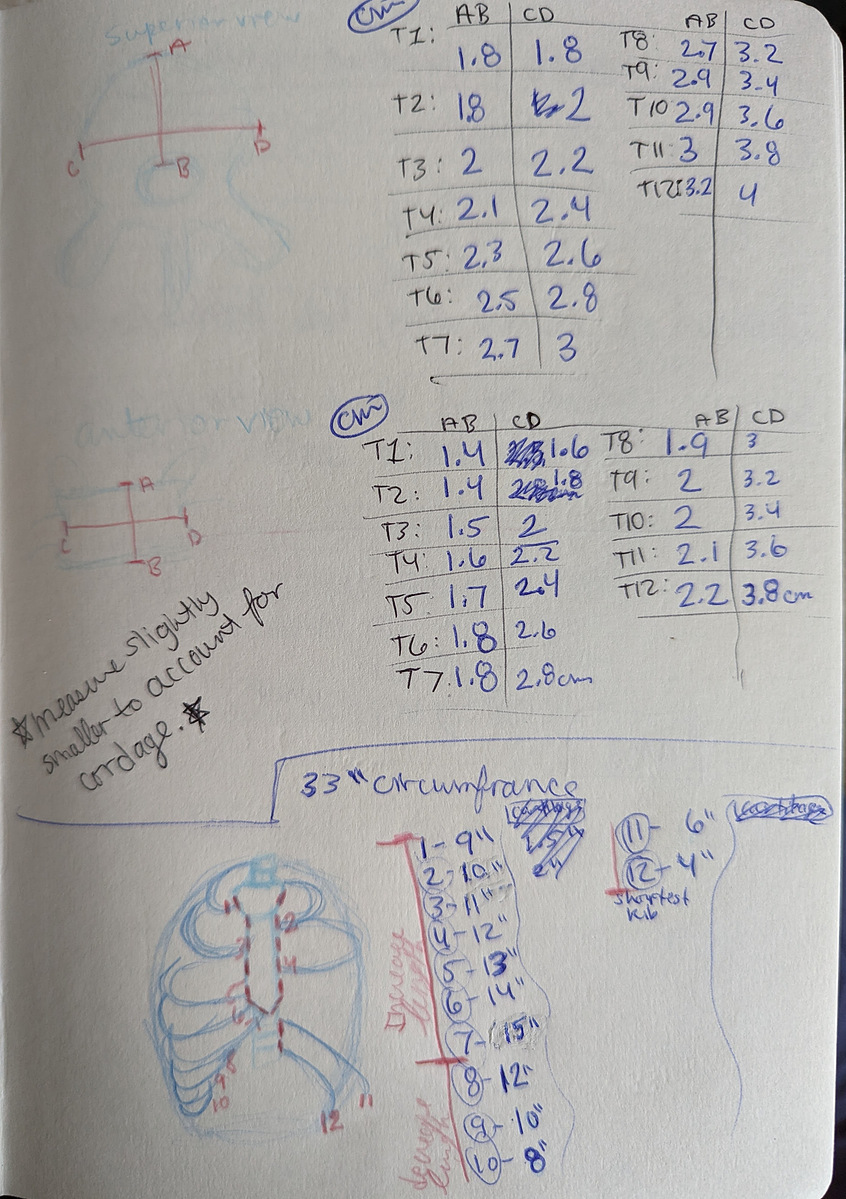 superior view
A
C
D
B
cm
AB CD
T1: 1.8 1.8
T2: 18 2
T3: 2 2.2
T4: 2.1 2.4
T5: 2.3 2.6
T6: 2.5 2.8
T7: 2.7 3
AB CD
T8: 2.7 3.2
T9: 2.9 3.4
T10 2.9 3.6
T11: 3 3.8
T12: 3.2 4
anterior view
A
C
D
B
cm
AB CD
T1: 1.4 1.6
T2: 1.4 1.8
T3: 1.5 2
T4: 1.6 2.2
T5: 1.7 2.4
T6: 1.8 2.6
T7: 1.8 2.8cm
AB CD
T8: 1.9 3
T9: 2 3.2
T10: 2 3.4
T11: 2.1 3.6
T12: 2.2 3.8cm
measure slightly
smaller to account for
cordage.
33" circumfrance
1 - 9"
2 - 10"
3 - 11"
4 - 12"
5 - 13"
6 - 14"
7 - 15"
8 - 12"
9 - 10"
10 - 8"
Increase
length
decrease
length
11 - 6"
12 - 4"
shortest
rib
1
2
3
4
5
6
8
9
10
12
11